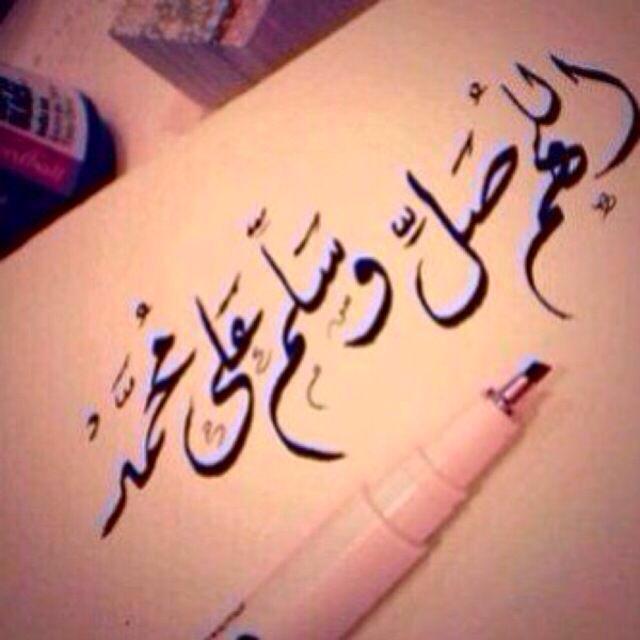 اللهم صَلِّ وَسَلِّم عَلى مُحمَّد